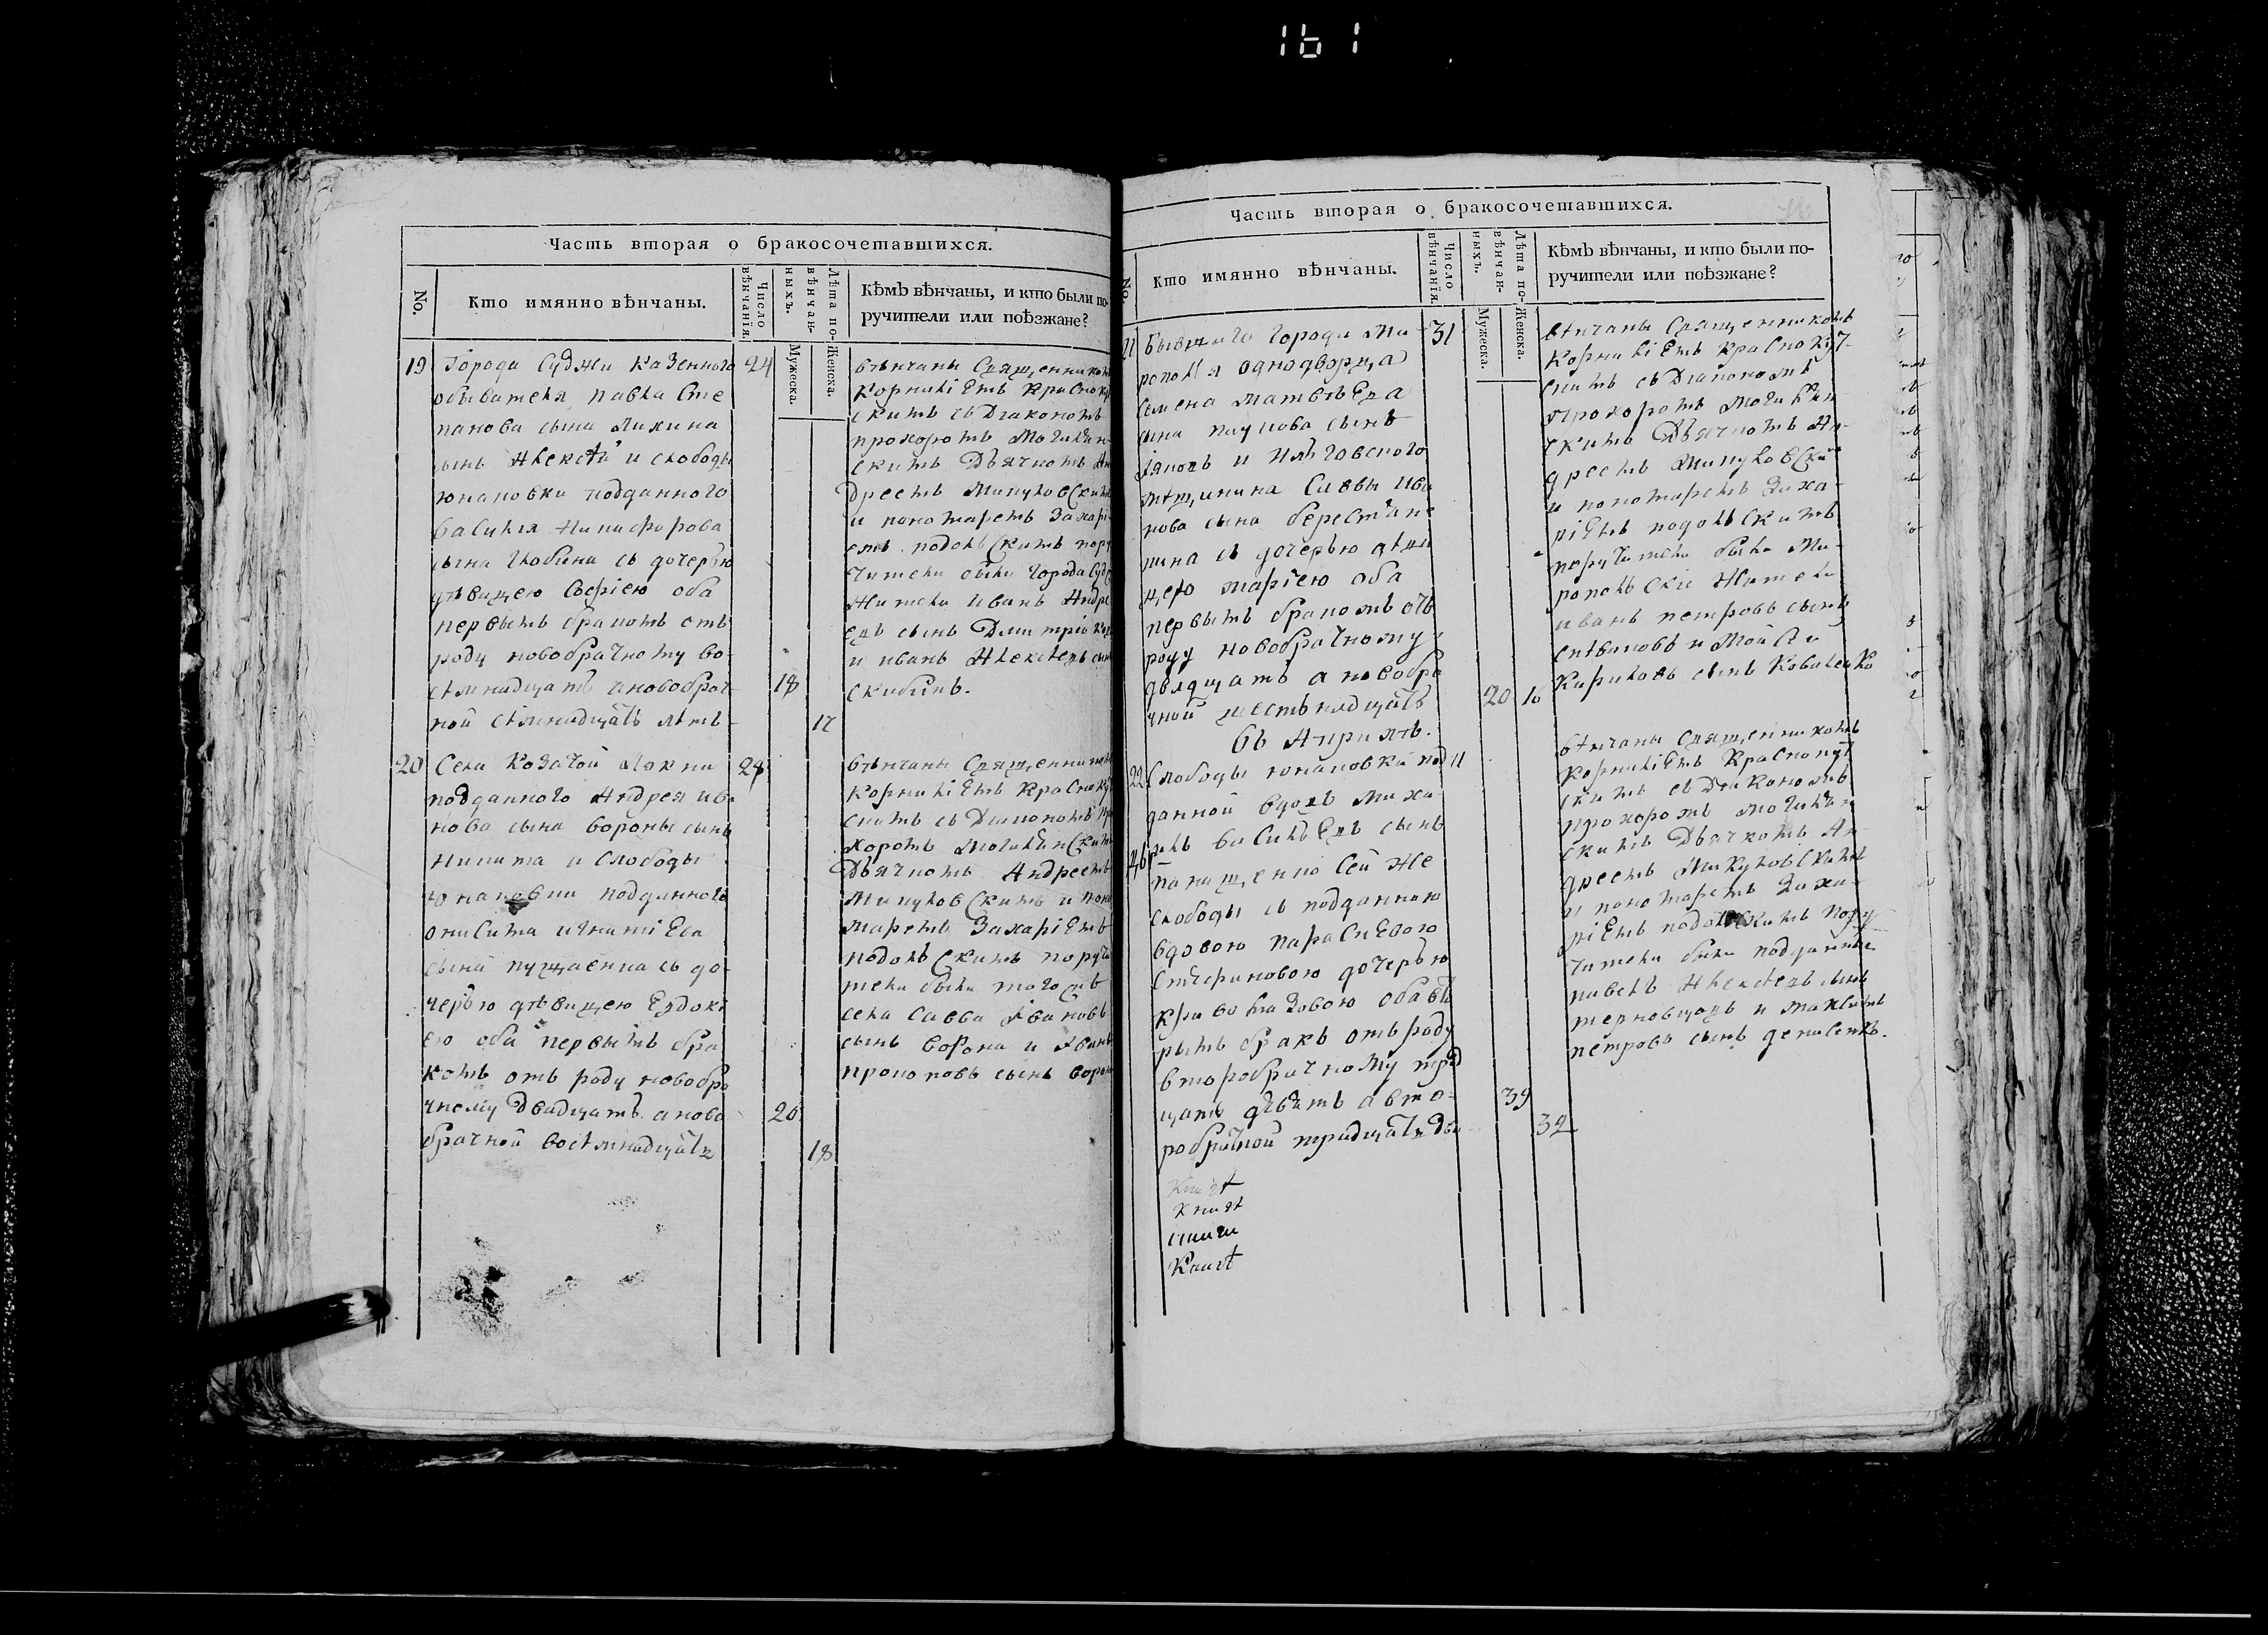 161
Часть вторая о бракосочетавшихся.
No.
Кто имянно вѣнчаны.
Число вѣнчанїя.
Лѣта по-вѣнчан-ныхъ.
Мужеска.
Женска.
Кѣмъ вѣнчаны, и кто были по-
ручители или поѣзжане?
19 Города Суджи казенного 24
обывателя павла Сте
панова сына Ликина
сынъ Алексѣй и слободы
юнаковки подданного
василия Никифорова
сына с дочерью
дѣвицею Софiею оба
первымъ бракомъ отъ
роду новобрачному во-
семнадцать а новобрач- 18
ной семнадцать лѣтъ 17
вѣнчаны Священником
Корнилiемъ Краснок
скимъ съ Дiакономъ
прохоромъ Могилян
скимъ Дьячкомъ Ан
дреемъ Микуловским
и пономаремъ Захарi
емъ подольскимъ пору
чители были города Суд
жители Иванъ Андре
евъ сынъ Дмитрiе
и иванъ Алексѣевъ сын
20 Села Козачой Локни 28
подданного Андрея ива
нова сына вороны сынъ
Никита и Слободы
Юнаковки подданного
онисима игнатiева
сына с до-
черью дѣвицею Евдокi
ею оба первымъ бра
комъ отъ роду новобра
чному двадцать а ново 20
брачной восемнадцать 18
вѣнчаны Священником
Корнилiемъ Красноку
скимъ съ Дiакономъ пр
хоромъ Могилянским
Дьячкомъ Андреемъ
Микуловскимъ и поно
маремъ Захарiемъ
подольскимъ поручи
тели были того
села Савва Ивановъ
сынъ ворона и Иванъ
сынъ ворон
Часть вторая о бракосочетавшихся.
No.
Кто имянно вѣнчаны.
Число вѣнчанїя.
Лѣта по-вѣнчан-ныхъ.
Мужеска.
Женска.
Кѣмъ вѣнчаны, и кто были по-
ручители или поѣзжане?
21 бывшего города Ми 31
рополья однодворца
Семена матвѣева
сына сынъ
и
мѣщанина Саввы ива
нова сына
с дочерью дѣви
цею марiею оба
первымъ бракомъ отъ
роду новобрачному
двадцать а новобра
чной шестьнадцать 20 16
вѣнчаны Священникомъ
Корнилiемъ Краснокут-
скимъ съ Дiакономъ
прохоромъ Могилян
скимъ Дьячкомъ Ан-
дреемъ Микуловским
и пономаремъ Заха-
рiемъ подольскимъ
поручители были Ми-
ропольские жители
иванъ петровъ сынъ
и
Кириловъ сынъ Коваленко
въ Априлѣ.
22 Слободы юнаковки под 11
данной вдовъ миха
илъ васильевъ сынъ
сей же
слободы съ подданною
вдовою параскевою
дочерью
оба вто
рымъ бракъ отъ роду
второбрачному трид
цать девять а вто- 39
робрачной тридцать два 32
вѣнчаны Священникомъ
Корнилiемъ Краснокут
скимъ съ Дiакономъ
прохоромъ могилян
скимъ Дьячкомъ Ан
дреемъ Микуловскимъ
и пономаремъ Заха-
рiемъ подольскимъ пору
чители были подданные
павелъ Алексѣевъ сынъ
и максимъ
петровъ сынъ денисенко.